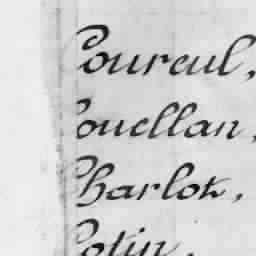 Coureul,
Couellan,
Charlot,
Cotin.